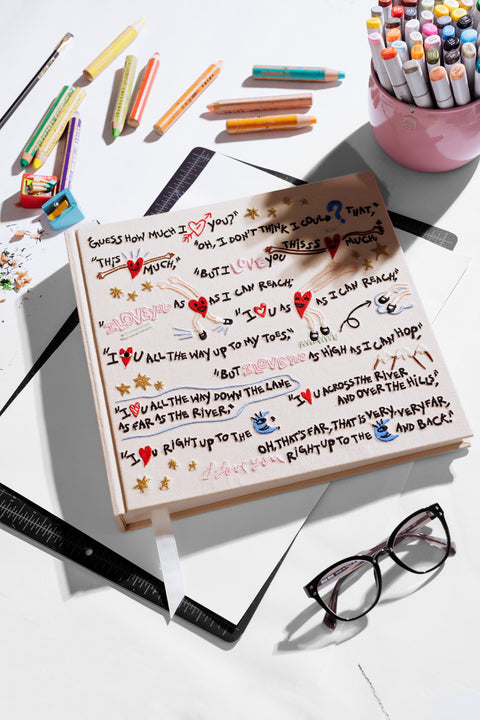 "GUESS HOW MUCH I YOU?" "OH, I DON'T THINK I COULD ? THAT,"
"THIS MUCH," "BUT I LOVE YOU THISSS MUCH,"
"I LOVE YOU AS AS I CAN REACH," "I U AS AS I CAN REACH,"
"I U ALL THE WAY UP TO MY TOES," "BUT I LOVE YOU AS HIGH AS I CAN HOP"
"I U ALL THE WAY DOWN THE LANE AS FAR AS THE RIVER," "I U ACROSS THE RIVER AND OVER THE HILLS,"
"I U RIGHT UP TO THE OH, THAT'S FAR, THAT IS VERY-VERY FAR,
I love you RIGHT UP TO THE AND BACK."